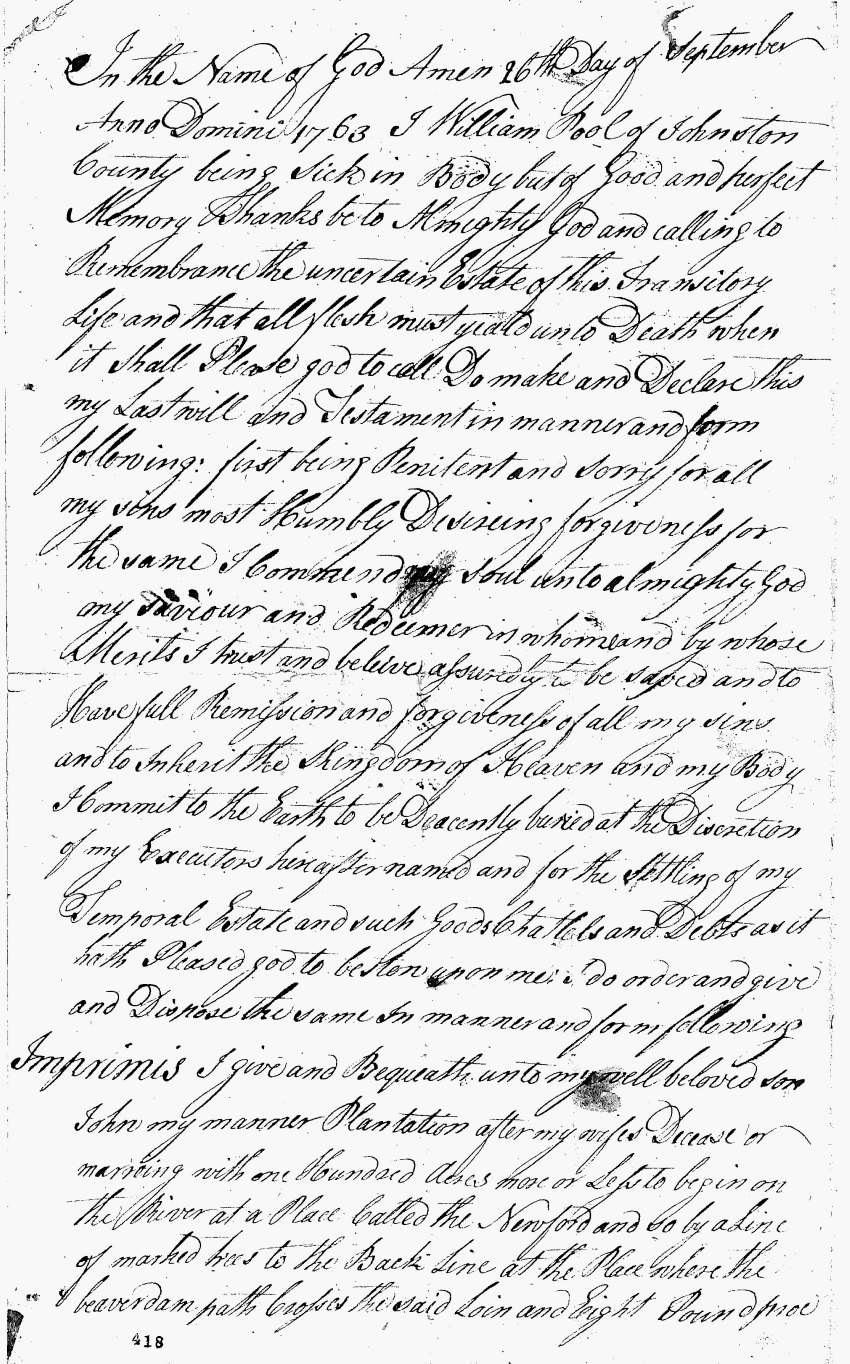 In the Name of God Amen 26th Day of September
Anno Domini 1763 I William Pool of Johnston
County being Sick in Body but of Good and perfect
Memory Thanks be to Almighty God and calling to
Remembrance the uncertain Estate of this Transitory
Life and that all flesh must yeald unto Death when
it Shall Please god to call Do make and Declare this
my Last will and Testament in manner and form
following: first being Penitent and sorry for all
my sins most Humbly Desireing forgiveness for
the same I Commend my soul unto almighty God
my saviour and Redeemer in whome and by whose
Merits I trust and beleive assuredly to be saved and to
Have full Remission and forgiveness of all my sins
and to Inherit the Kingdom of Heaven and my Body
I Commit to the Earth to be Deacently buried at the Discretion
of my Executors hereafter named and for the Settling of my
Temporal Estate and such Goods Chattels and Debts as it
hath Pleased god to bestow upon me: I do order and give
and Dispose the same In manner and form following
Imprimis I give and Bequeath unto my well beloved son
John my manner Plantation after my wifes Decease or
marreing with one Hundred Acres more or Less to begin on
the River at a Place Called the Newford and so by a Line
of marked trees to the Back Line at the Place where the
beaverdam path Crosses the said Loin and Eight Pound proc
418